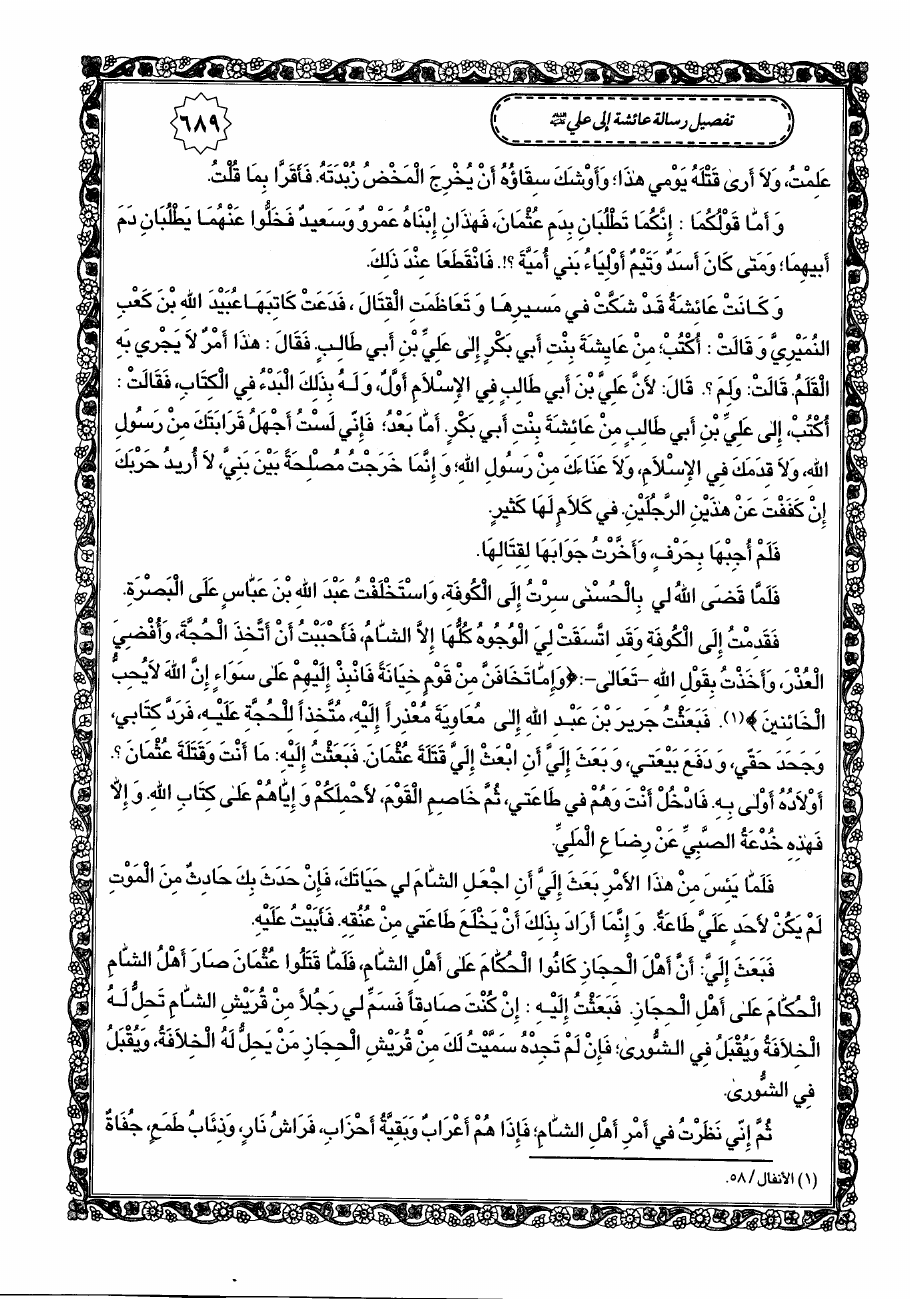 تفصيل رسالة عائشة إلى علي
٦٨٩
عَلِمْتُ، وَلاَ أَرىٰ قَتْلَهُ يَوْمي هٰذَا؛ وَأَوْشَكَ سِقَاؤُهُ أَنْ يُخْرِجَ الْمَخْضُ زُبْدَتَهُ. فَأَقَرَّا بِمَا قُلْتُ.
وَ أَمَّا قَوْلُكُمَا : إِنَّكُمَا تَطْلُبَانِ بِدَمِ عُثْمَانَ، فَهٰذَانِ إِبْنَاهُ عَمْرُو وَسَعيدٌ فَخَلُّوا عَنْهُمَا يَطْلُبَانِ دَمَ
أَبيهِمَا؛ وَمَتىٰ كَانَ أَسَدٌ وَتَيْمٌ أَوْلِيَاءُ بَني أُمَيَّةَ ؟!. فَانْقَطَعَا عِنْدَ ذَلِكَ.
وَ كَانَتْ عَائِشَةُ قَدْ شَكَّتْ في مَسيرِهَا وَ تَعَاظَمَتِ الْقِتَالَ ، فَدَعَتْ كَاتِبَهَا عُبَيْدَ اللهِ بْنَ كَعْبٍ
النُمَيْرِيَّ وَ قَالَتْ : أُكْتُبْ؛ مِنْ عَايِشَةَ بِنْتِ أَبي بَكْرٍ إِلىٰ عَلِيِّ بْنِ أَبي طَالِبٍ. فَقَالَ : هٰذا أَمْرٌ لاَ يَجْري بِهِ
الْقَلَمُ. قَالَتْ: وَلِمَ ؟. قَالَ: لأَنَّ عَلِيَّ بْنَ أَبي طَالِبٍ فِي الإِسْلاَمِ أَوَّلٌ، وَ لَهُ بِذَلِكَ الْبَدْءُ فِي الْكِتَابِ، فَقَالَتْ :
أُكْتُبْ، إِلىٰ عَلِيِّ بْنِ أَبي طَالِبٍ مِنْ عَائِشَةَ بِنْتِ أَبي بَكْرٍ. أَمَّا بَعْدُ؛ فَإِنّي لَسْتُ أَجْهَلُ قَرَابَتَكَ مِنْ رَسُولِ
اللهِ، وَلاَ قِدَمَكَ فِي الإِسْلاَمِ، وَلاَ غَنَاءَكَ مِنْ رَسُولِ اللهِ؛ وَ إِنَّمَا خَرَجْتُ مُصْلِحَةً بَيْنَ بَنِيَّ، لاَ أُريدُ حَرْبَكَ
إِنْ كَفَفْتَ عَنْ هٰذَيْنِ الرَّجُلَيْنِ. في كَلاَمٍ لَهَا كَثيرٍ.
فَلَمْ أُجِبْهَا بِحَرْفٍ، وَأَخَّرْتُ جَوَابَهَا لِقِتَالِهَا.
فَلَمَّا قَضَى اللهُ لي بِالْحُسْنىٰ سِرْتُ إِلَى الْكُوفَةِ، وَاسْتَخْلَفْتُ عَبْدَ اللهِ بْنَ عَبَّاسٍ عَلَى الْبَصْرَةِ.
فَقَدِمْتُ إِلَى الْكُوفَةِ وَقَدِ اتَّسَقَتْ لِيَ الْوُجُوهُ كُلُّهَا إِلاَّ الشَّامُ، فَأَحْبَبْتُ أَنْ أَتَّخِذَ الْحُجَّةَ، وَأُقْضِيَ
الْعُذْرَ، وَأَخَذْتُ بِقَوْلِ اللهِ -تَعَالىٰ-: ﴿وَإِمَّا تَخَافَنَّ مِنْ قَوْمٍ خِيَانَةً فَانْبِذْ إِلَيْهِمْ عَلىٰ سَوَاءٍ إِنَّ اللهَ لاَيُحِبُّ
الْخَائِنينَ ﴾(١). فَبَعَثْتُ جَريرَ بْنَ عَبْدِ اللهِ إِلىٰ مُعَاوِيَةَ مُعْذِراً إِلَيْهِ، مُتَّخِذاً لِلْحُجَّةِ عَلَيْهِ، فَرَدَّ كِتَابي،
وَجَحَدَ حَقّي، وَ دَفَعَ بَيْعَتي، وَ بَعَثَ إِلَيَّ أَنِ ابْعَثْ إِلَيَّ قَتَلَةَ عُثْمَانَ. فَبَعَثْتُ إِلَيْهِ: مَا أَنْتَ وَقَتَلَةَ عُثْمَانَ ؟.
أَوْلاَدُهُ أَوْلىٰ بِهِ. فَادْخُلْ أَنْتَ وَهُمْ في طَاعَتي، ثُمَّ خَاصِمِ الْقَوْمَ، لأَحْمِلَكُمْ وَ إِيَّاهُمْ عَلىٰ كِتَابِ اللهِ. وَ إِلاَّ
فَهٰذِهِ خُدْعَةُ الصَّبِيِّ عَنْ رِضَاعِ الْمَلِيِّ.
فَلَمَّا يَئِسَ مِنْ هٰذَا الأَمْرِ بَعَثَ إِلَيَّ أَنِ اجْعَلِ الشَّامَ لي حَيَاتَكَ، فَإِنْ حَدَثَ بِكَ حَادِثٌ مِنَ الْمَوْتِ
لَمْ يَكُنْ لأَحَدٍ عَلَيَّ طَاعَةٌ. وَ إِنَّمَا أَرَادَ بِذَلِكَ أَنْ يَخْلَعَ طَاعَتي مِنْ عُنُقِهِ. فَأَبَيْتُ عَلَيْهِ.
فَبَعَثَ إِلَيَّ: أَنَّ أَهْلَ الْحِجَازِ كَانُوا الْحُكَّامَ عَلىٰ أَهْلِ الشَّامِ، فَلَمَّا قَتَلُوا عُثْمَانَ صَارَ أَهْلُ الشَّامِ
الْحُكَّامَ عَلىٰ أَهْلِ الْحِجَازِ. فَبَعَثْتُ إِلَيْهِ : إِنْ كُنْتَ صَادِقاً فَسَمِّ لي رَجُلاً مِنْ قُرَيْشِ الشَّامِ تَحِلُّ لَهُ
الْخِلاَفَةُ وَيُقْبَلُ فِي الشُّورىٰ؛ فَإِنْ لَمْ تَجِدْهُ سَمَّيْتُ لَكَ مِنْ قُرَيْشِ الْحِجَازِ مَنْ يَحِلُّ لَهُ الْخِلاَفَةُ، وَيُقْبَلُ
فِي الشُّورىٰ.
ثُمَّ إِنّي نَظَرْتُ في أَمْرِ أَهْلِ الشَّامِ؛ فَإِذَا هُمْ أَعْرَابٌ وَبَقِيَّةُ أَحْزَابٍ، فَرَاشُ نَارٍ، وَذِئَابُ طَمَعٍ، جُفَاةٌ
(١) الأنفال / ٥٨.